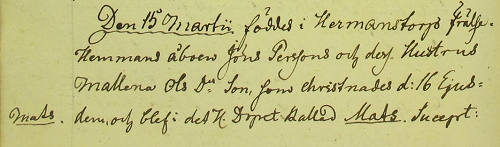 Den 15 Martii. föddes i Hermanstorps Frälse-
Hemmans åboen Jöns Persons och deß Hustrus
Mallena Ols Dr Son, som christnades d: 16 Ejus-
Mats. dem, och blef i det H. Dopet kallad Mats. Sucept: